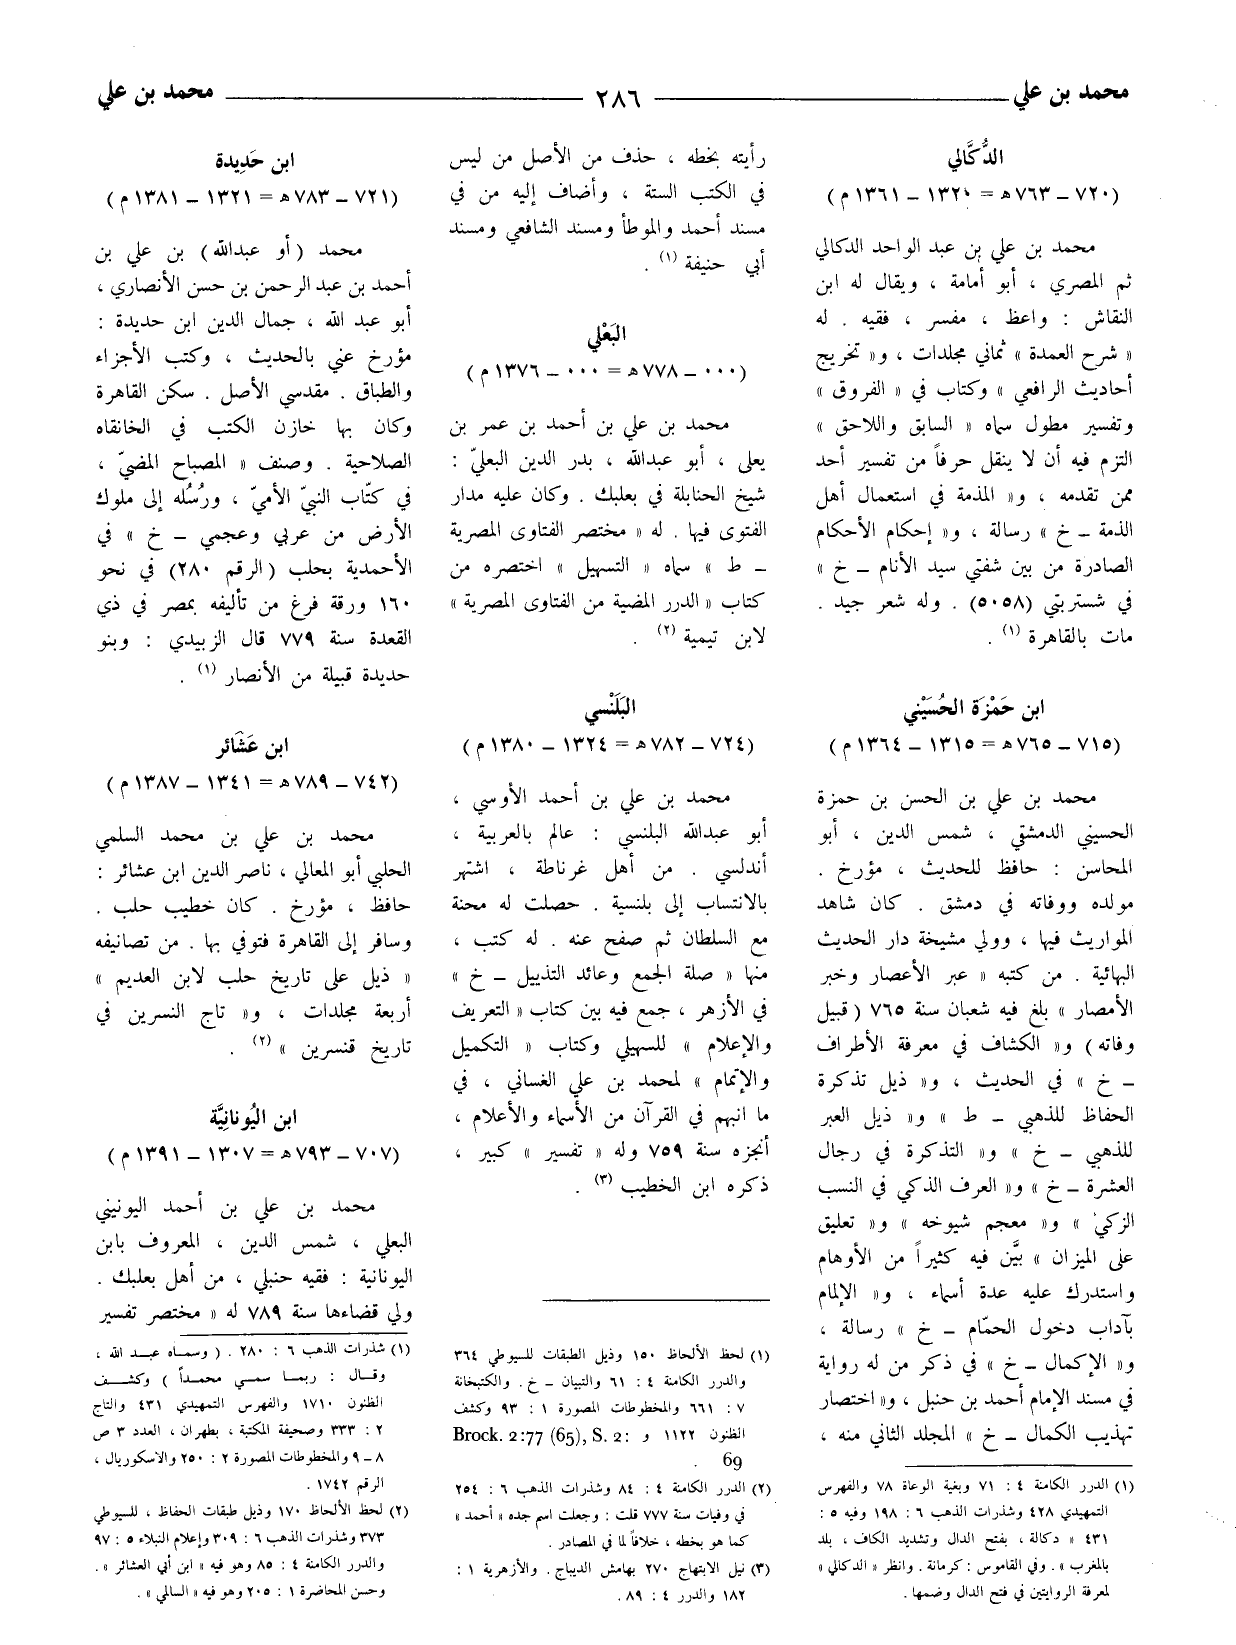 محمد بن علي ــــــ ٢٨٦ ــــــ محمد بن علي
الدُّكَّالي
(٧٢٠ – ٧٦٣ ه = ١٣٢٠ – ١٣٦١ م)
محمد بن علي بن عبد الواحد الدكالي
ثم المصري ، أبو أمامة ، ويقال له ابن
النقاش : واعظ ، مفسر ، فقيه . له
« شرح العمدة » ثماني مجلدات ، و« تخريج
أحاديث الرافعي » وكتاب في « الفروق »
وتفسير مطول سماه « السابق واللاحق »
التزم فيه أن لا ينقل حرفاً من تفسير أحد
ممن تقدمه ، و« المذمة في استعمال أهل
الذمة ــ خ » رسالة ، و« إحكام الأحكام
الصادرة من بين شفتي سيد الأنام ــ خ »
في شستربتي (٥٠٥٨) . وله شعر جيد .
مات بالقاهرة (١) .
ابن حَمْزَة الحُسَيْني
(٧١٥ – ٧٦٥ ه = ١٣١٥ – ١٣٦٤ م)
محمد بن علي بن الحسن بن حمزة
الحسيني الدمشقي ، شمس الدين ، أبو
المحاسن : حافظ للحديث ، مؤرخ .
مولده ووفاته في دمشق . كان شاهد
المواريث فيها ، وولي مشيخة دار الحديث
البهائية . من كتبه « عبر الأعصار وخبر
الأمصار » بلغ فيه شعبان سنة ٧٦٥ ( قبيل
وفاته) و« الكشاف في معرفة الأطراف
ــ خ » في الحديث ، و« ذيل تذكرة
الحفاظ للذهبي ــ ط » و« ذيل العبر
للذهبي ــ خ » و« التذكرة في رجال
العشرة ــ خ » و« العرف الذكي في النسب
الزكي » و« معجم شيوخه » و« تعليق
على الميزان » بيَّن فيه كثيراً من الأوهام
واستدرك عليه عدة أسماء ، و« الإلمام
بآداب دخول الحمّام ــ خ » رسالة ،
و« الإكمال ــ خ » في ذكر من له رواية
في مسند الإمام أحمد بن حنبل ، و« اختصار
تهذيب الكمال ــ خ » المجلد الثاني منه ،
(١) الدرر الكامنة ٤ : ٧١ وبغية الوعاة ٧٨ والفهرس
التمهيدي ٤٢٨ وشذرات الذهب ٦ : ١٩٨ وفيه ٥ :
٤٣١ « دكالة ، بفتح الدال وتشديد الكاف ، بلد
بالمغرب » . وفي القاموس : كرمانة . وانظر « الدكالي »
لمعرفة الروايتين في فتح الدال وضمها .
رأيته بخطه ، حذف من الأصل من ليس
في الكتب الستة ، وأضاف إليه من في
مسند أحمد والموطأ ومسند الشافعي ومسند
أبي حنيفة (١) .
البَعْلي
(٠٠٠ – ٧٧٨ ه = ٠٠٠ – ١٣٧٦ م)
محمد بن علي بن أحمد بن عمر بن
يعلى ، أبو عبدالله ، بدر الدين البعليّ :
شيخ الحنابلة في بعلبك . وكان عليه مدار
الفتوى فيها . له « مختصر الفتاوى المصرية
ــ ط » سماه « التسهيل » اختصره من
كتاب « الدرر المضية من الفتاوى المصرية »
لابن تيمية (٢) .
البَلَنْسي
(٧٢٤ – ٧٨٢ ه = ١٣٢٤ – ١٣٨٠ م)
محمد بن علي بن أحمد الأوسي ،
أبو عبدالله البلنسي : عالم بالعربية ،
أندلسي . من أهل غرناطة ، اشتهر
بالانتساب إلى بلنسية . حصلت له محنة
مع السلطان ثم صفح عنه . له كتب ،
منها « صلة الجمع وعائد التذييل ــ خ »
في الأزهر ، جمع فيه بين كتاب « التعريف
والإعلام » للسهيلي وكتاب « التكميل
والإتمام » لمحمد بن علي الغساني ، في
ما انبهم في القرآن من الأسماء والأعلام ،
أنجزه سنة ٧٥٩ وله « تفسير » كبير ،
ذكره ابن الخطيب (٣) .
(١) لحظ الألحاظ ١٥٠ وذيل الطبقات للسيوطي ٣٦٤
والدرر الكامنة ٤ : ٦١ والتبيان ــ خ . والكتبخانة
٧ : ٦٦١ والمخطوطات المصورة ١ : ٩٣ وكشف
الظنون ١١٢٢ و Brock. 2:77 (65), S. 2:
69 .
(٢) الدرر الكامنة ٤ : ٨٤ وشذرات الذهب ٦ : ٢٥٤
في وفيات سنة ٧٧٧ قلت : وجعلت اسم جده « أحمد »
كما هو بخطه ، خلافاً لما في المصادر .
(٣) نيل الابتهاج ٢٧٠ بهامش الديباج . والأزهرية ١ :
١٨٢ والدرر ٤ : ٨٩ .
ابن حَدِيدة
(٧٢١ – ٧٨٣ ه = ١٣٢١ – ١٣٨١ م)
محمد (أو عبدالله) بن علي بن
أحمد بن عبد الرحمن بن حسن الأنصاري ،
أبو عبد الله ، جمال الدين ابن حديدة :
مؤرخ عني بالحديث ، وكتب الأجزاء
والطباق . مقدسي الأصل . سكن القاهرة
وكان بها خازن الكتب في الخانقاه
الصلاحية . وصنف « المصباح المضيّ ،
في كتّاب النبيّ الأميّ ، ورُسُله إلى ملوك
الأرض من عربي وعجمي ــ خ » في
الأحمدية بحلب (الرقم ٢٨٠) في نحو
١٦٠ ورقة فرغ من تأليفه بمصر في ذي
القعدة سنة ٧٧٩ قال الزبيدي : وبنو
حديدة قبيلة من الأنصار (١) .
ابن عَشَائر
(٧٤٢ – ٧٨٩ ه = ١٣٤١ – ١٣٨٧ م)
محمد بن علي بن محمد السلمي
الحلبي أبو المعالي ، ناصر الدين ابن عشائر :
حافظ ، مؤرخ . كان خطيب حلب .
وسافر إلى القاهرة فتوفي بها . من تصانيفه
« ذيل على تاريخ حلب لابن العديم »
أربعة مجلدات ، و« تاج النسرين في
تاريخ قنسرين » (٢) .
ابن اليُونانِيَّة
(٧٠٧ – ٧٩٣ ه = ١٣٠٧ – ١٣٩١ م)
محمد بن علي بن أحمد اليونيني
البعلي ، شمس الدين ، المعروف بابن
اليونانية : فقيه حنبلي ، من أهل بعلبك .
ولي قضاءها سنة ٧٨٩ له « مختصر تفسير
(١) شذرات الذهب ٦ : ٢٨٠ . ( وسماه عبد الله ،
وقال : ربما سمي محمداً ) وكشف
الظنون ١٧١٠ والفهرس التمهيدي ٤٣١ والتاج
٢ : ٣٣٣ وصحيفة المكتبة ، بطهران ، العدد ٣ ص
٨ – ٩ والمخطوطات المصورة ٢ : ٢٥٠ والاسكوريال ،
الرقم ١٧٤٢ .
(٢) لحظ الألحاظ ١٧٠ وذيل طبقات الحفاظ ، للسيوطي
٣٧٣ وشذرات الذهب ٦ : ٣٠٩ وإعلام النبلاء ٥ : ٩٧
والدرر الكامنة ٤ : ٨٥ وهو فيه « ابن أبي العشائر » .
وحسن المحاضرة ١ : ٢٠٥ وهو فيه « السالمي » .